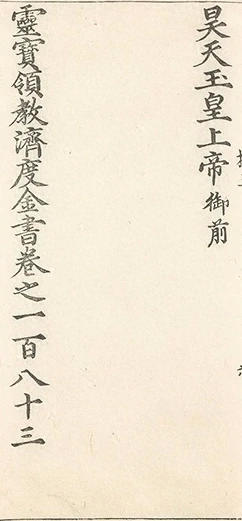 昊天玉皇上帝御前
靈寶領教濟度金書卷之一百八十三